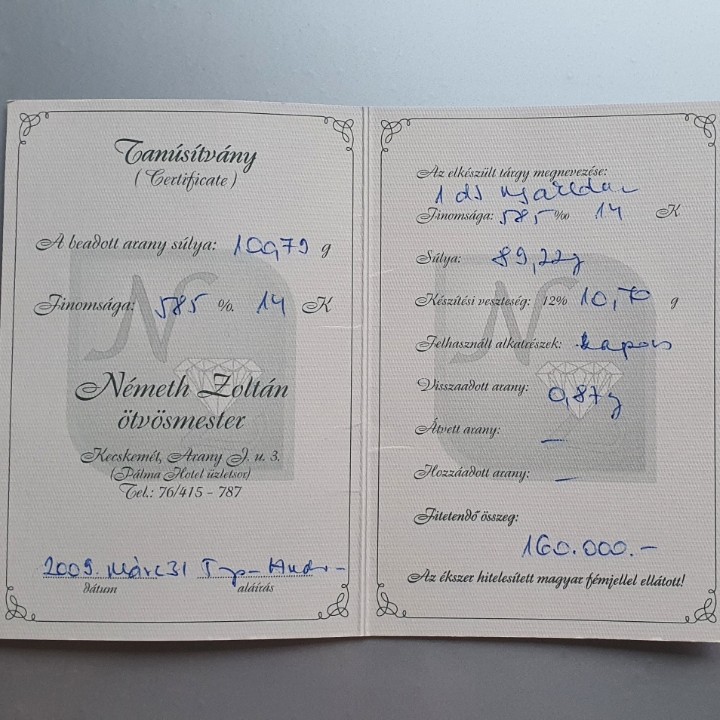 Tanúsítvány
(Certificate)
A beadott arany súlya: 100,79 g
Finomsága: 585 %. 14 K
N
Németh Zoltán
ötvösmester
Kecskemét, Arany J. u. 3.
(Pálma Hotel üzletsor)
Tel.: 76/415 - 787
2009. Márc 31
dátum aláírás
Az elkészült tárgy megnevezése:
1 db nyaklánc
Finomsága: 585 ‰ 14 K
Súlya: 89,22g
Készítési veszteség: 12% 10,70 g
N
Felhasznált alkatrészek: kapocs
Visszaadott arany: 0,87g
Átvett arany: —
Hozzáadott arany: —
Fizetendő összeg:
160.000.-
Az ékszer hitelesített magyar fémjellel ellátott!